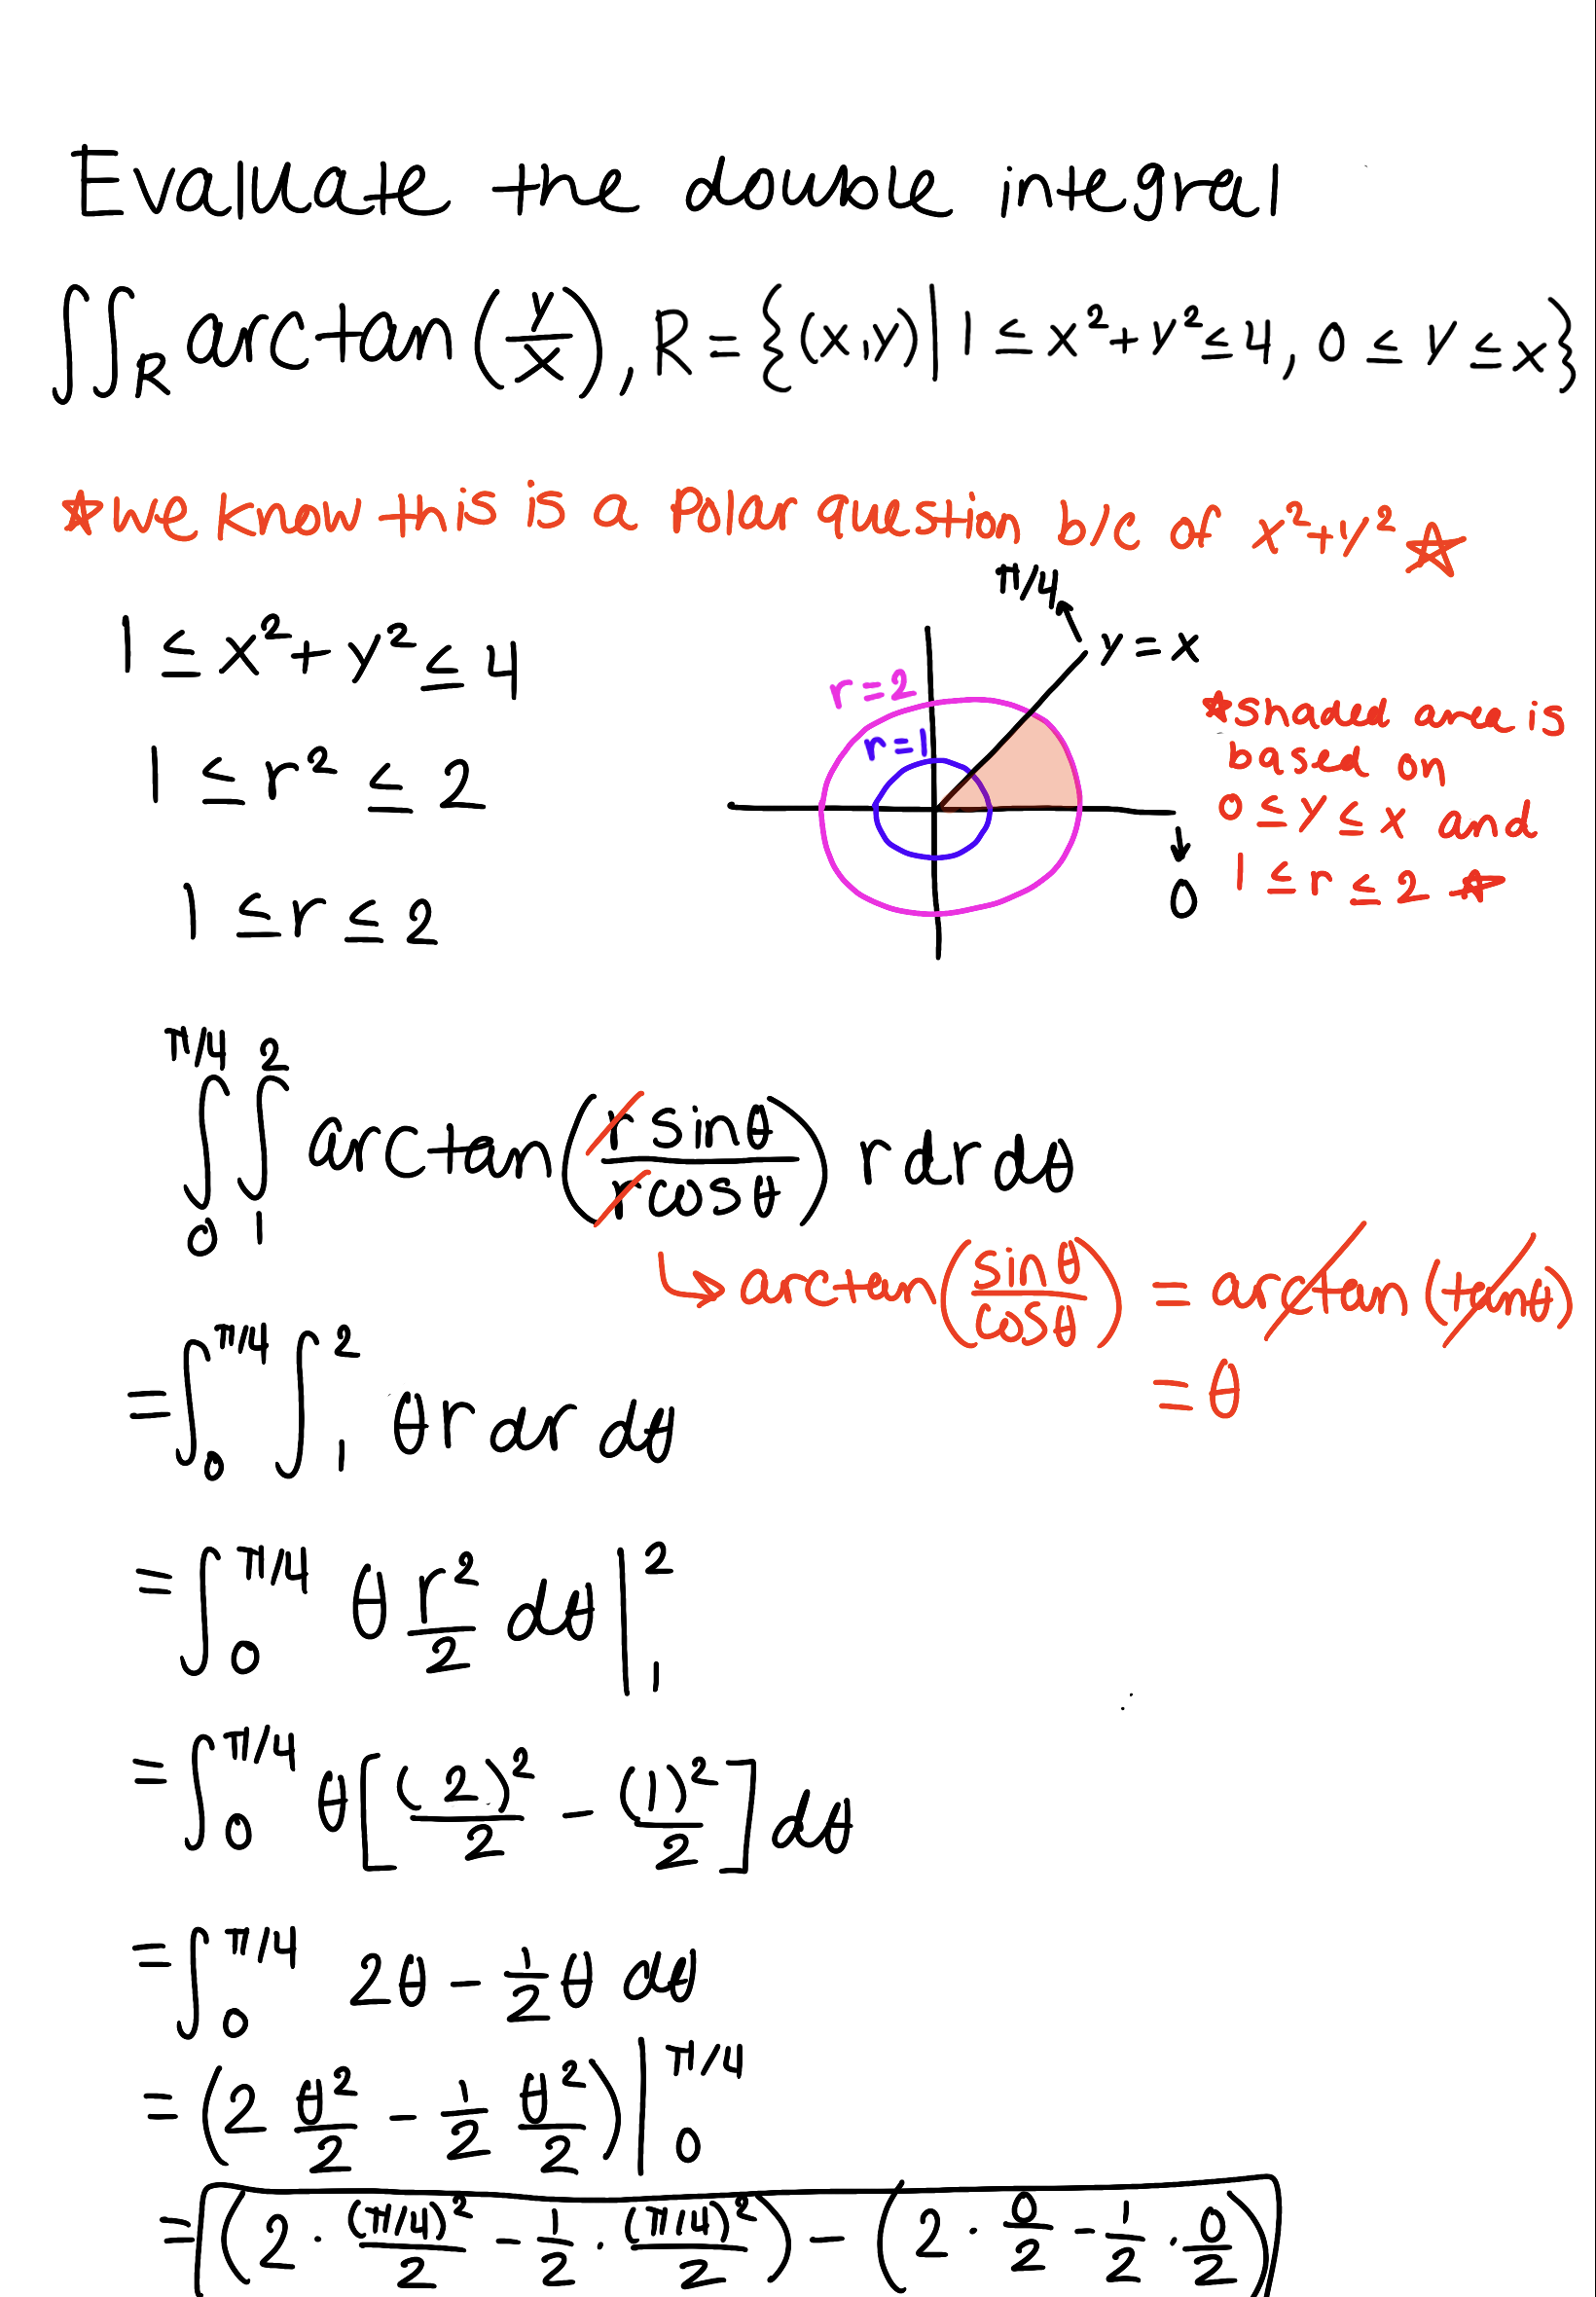 Evaluate the double integral
∬_R arctan(y/x), R = {(x,y) | 1 ≤ x²+y² ≤ 4, 0 ≤ y ≤ x}
☆ we know this is a Polar question b/c of x²+y² ☆
π/4
1 ≤ x²+y² ≤ 4
y = x
r=2
r=1
☆ shaded area is
based on
0 ≤ y ≤ x and
1 ≤ r ≤ 2 ☆
0
1 ≤ r² ≤ 2
1 ≤ r ≤ 2
∫_0^{π/4} ∫_1^2 arctan(r sinθ / r cosθ) r dr dθ
↳ arctan(sinθ / cosθ) = arctan(tanθ)
= θ
= ∫_0^{π/4} ∫_1^2 θ r dr dθ
= ∫_0^{π/4} θ r²/2 dθ |_1^2
= ∫_0^{π/4} θ[(2)²/2 - (1)²/2] dθ
= ∫_0^{π/4} 2θ - 1/2 θ dθ
= (2 θ²/2 - 1/2 θ²/2) |_0^{π/4}
= (2 · (π/4)²/2 - 1/2 · (π/4)²/2) - (2 · 0/2 - 1/2 · 0/2)